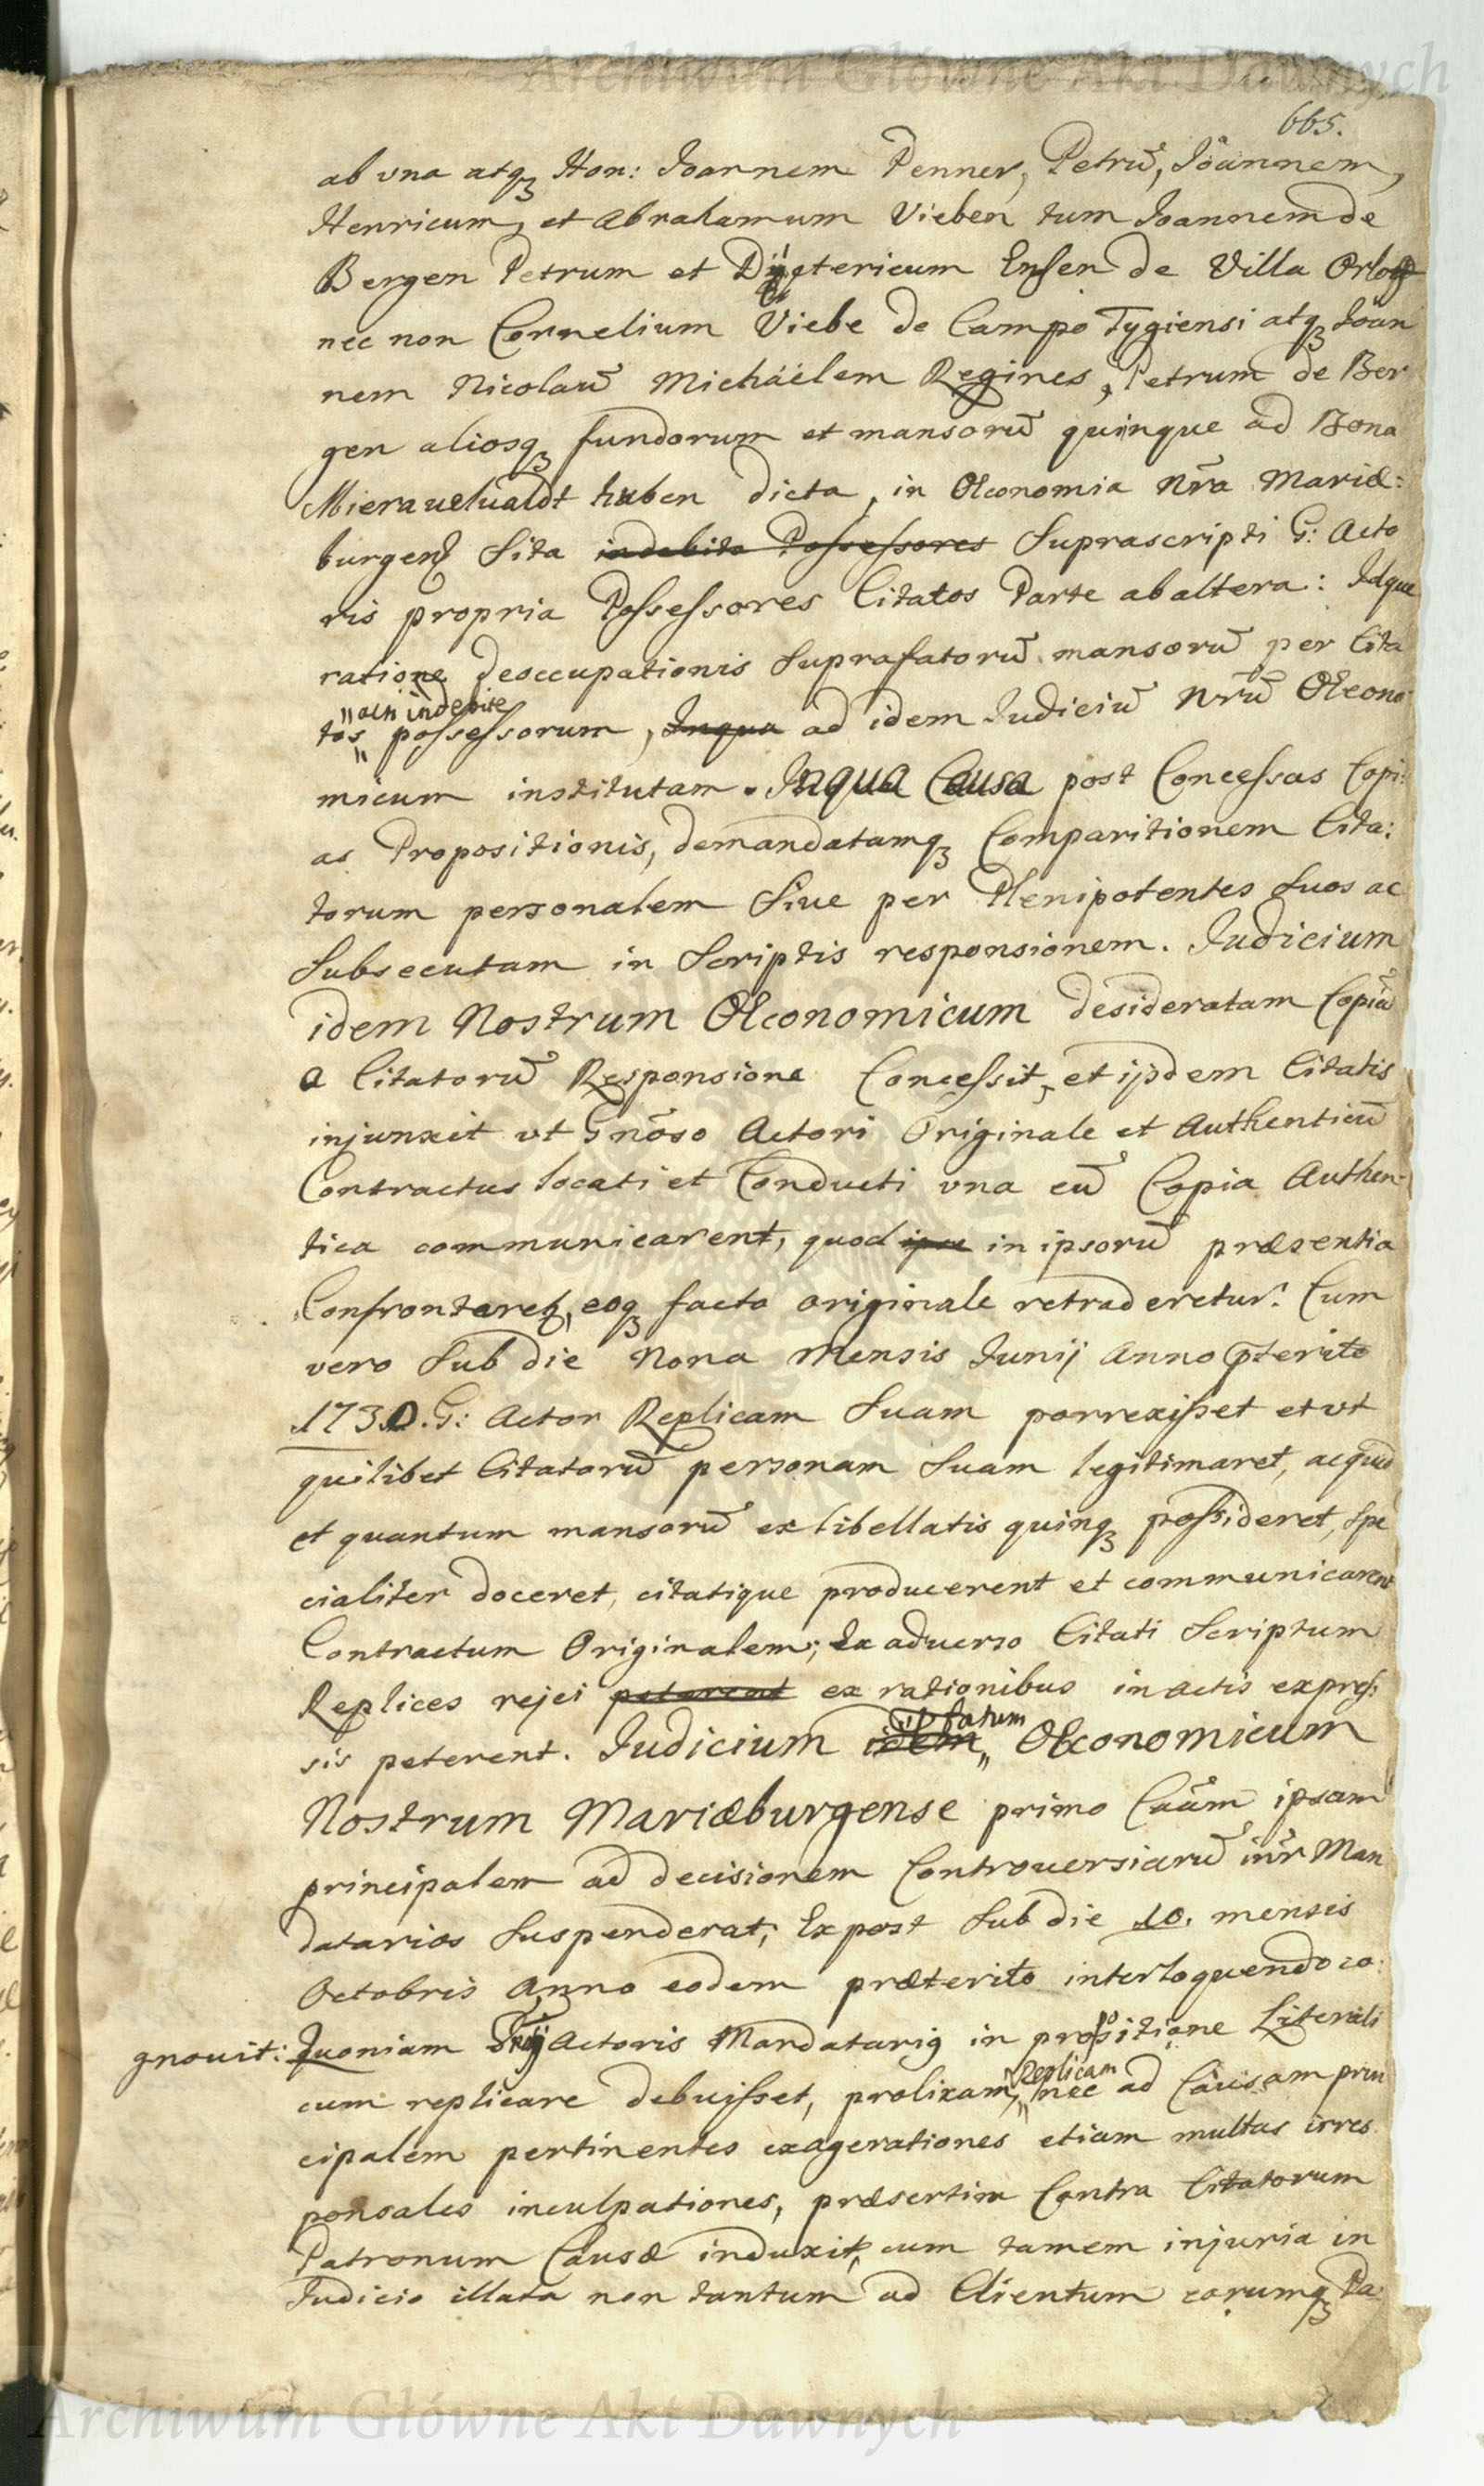 Archiwum Główne Akt Dawnych
665.
ab vna atqꝫ Hon: Joannem Penner, Petrū, Joannem,
Henricum, et Abrahamum Vieben tum Joannem de
Bergen Petrum et Ensen de Villa Orlof
nec non Cornelium Viebe de Campo Tygiensi atqꝫ Joan
nem Nicolaū Michäelem Regines, Petrum de Ber
gen aliosqꝫ fundorum et mansorū quinque ad Bona
Mierauelualdt huben dicta, in Œconomia Nr̄a Mariæ:
burgenꝭ sita indebite Possessores Suprascripti G: Acto
ris propria Possessores Citatos Parte ab altera: Idque
ratione deoccupationis suprafatorū mansorū per Cita
tos possessorum, Inqua ad idem Judiciū Nr̄ū Œcono
"acti indebite
micum institutam. Inqua Causa post Concessas Copi:
as Propositionis, demandatamqꝫ Comparitionem Cita:
torum personalem siue per Plenipotentes suos ac
subsecutam in Scriptis responsionem. Judicium
idem Nostrum Œconomicum desideratam Copiā
a Citatorū Responsione Concessit, et ijsdem Citatis
injunxit vt Gnōso Actori Originale et Authenticū
Contractus locati et Conducti vna cū Copia Authen-
tica communicarent, quod in ipsorū præsentia
Confrontaretꝭ, eoqꝫ facto originale retraderetur. Cum
vero sub die Nona Mensis Junij Anno Pterito
1730. G: Actor Replicam suam porrexisset et vt
quilibet Citatorū personam suam legitimaret, ac quid
et quantum mansorū ex libellatis quinqꝫ possideret, spe
cialiter doceret, citatique producerent et communicarent
Contractum Originalem; Ex aduerso Citati Scriptum
Replices rejci peterent ex rationibus in actis expres
sis peterent. Judicium idem fatum Œconomicum
Nostrum Mariæburgense primo Cāām ipsam
principalem ad decisionem Controuersiarū intr̄ Man
datarios suspenderat; Expost sub die 10. mensis
Octobris Anno eodem præterito interloquendo co:
gnouit: Quoniam Actoris Mandatariꝰ in propositione Literali
cum replicare debuisset, prolixam, Replicam nec ad Causam prin
cipalem pertinentes exagerationes etiam multas irres
ponsales inculpationes, præsertim Contra Citatorum
Patronum Causæ induxit, cum tamem injuria in
Judicio illata non tantum ad Clientum eorumqꝫ Pa:
Archiwum Główne Akt Dawnych